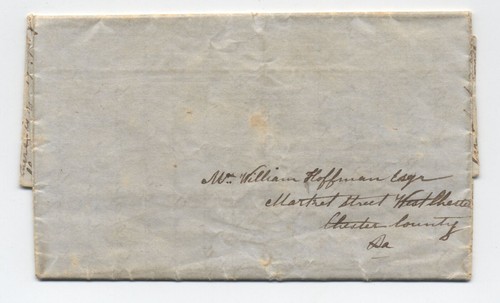 Mr. William Hoffman Esqr
Market Street West Chester
Chester County
Pa